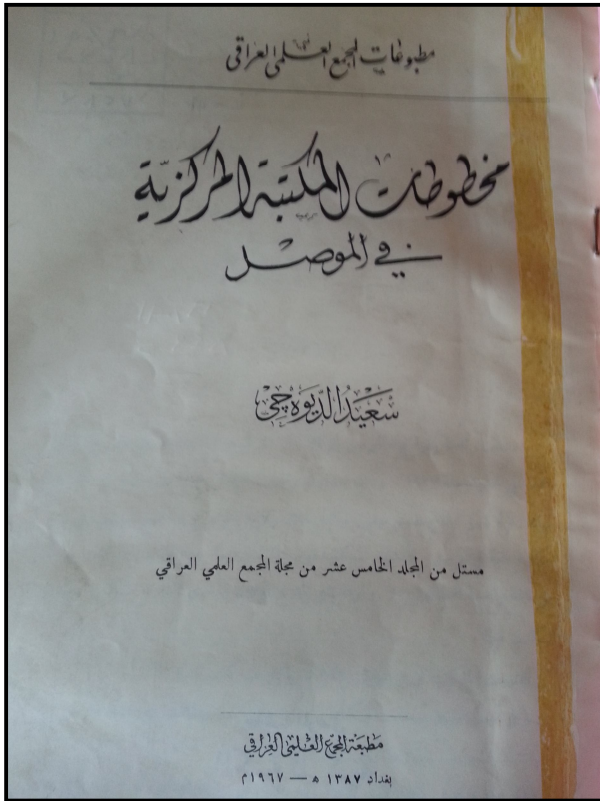 مطبوعات المجمع العلمي العراقي
مخطوطات المكتبة المركزية
في الموصل
سعيد الديوه چي
مستل من المجلد الخامس عشر من مجلة المجمع العلمي العراقي
مطبعة المجمع العلمي العراقي
بغداد ١٣٨٧ ه — ١٩٦٧م